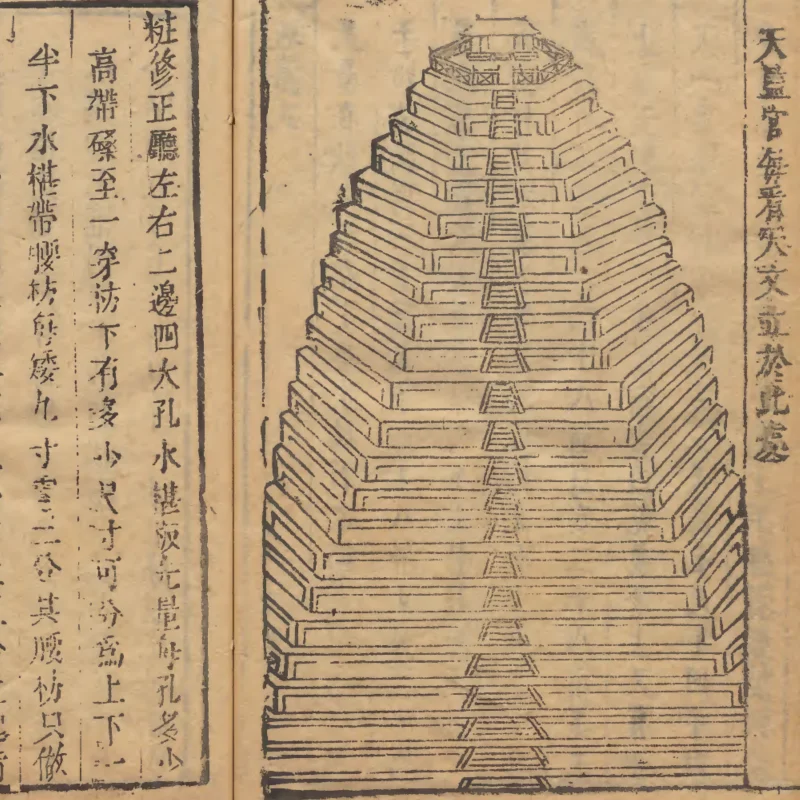 天監官每看天文立於此處
粧修正廳左右二邊四大孔水椹板先量每孔多少
高帶磉至一穿枋下有多少尺寸可分為上下一
半下水椹帶腰枋每矮九寸零三分其腰枋只做